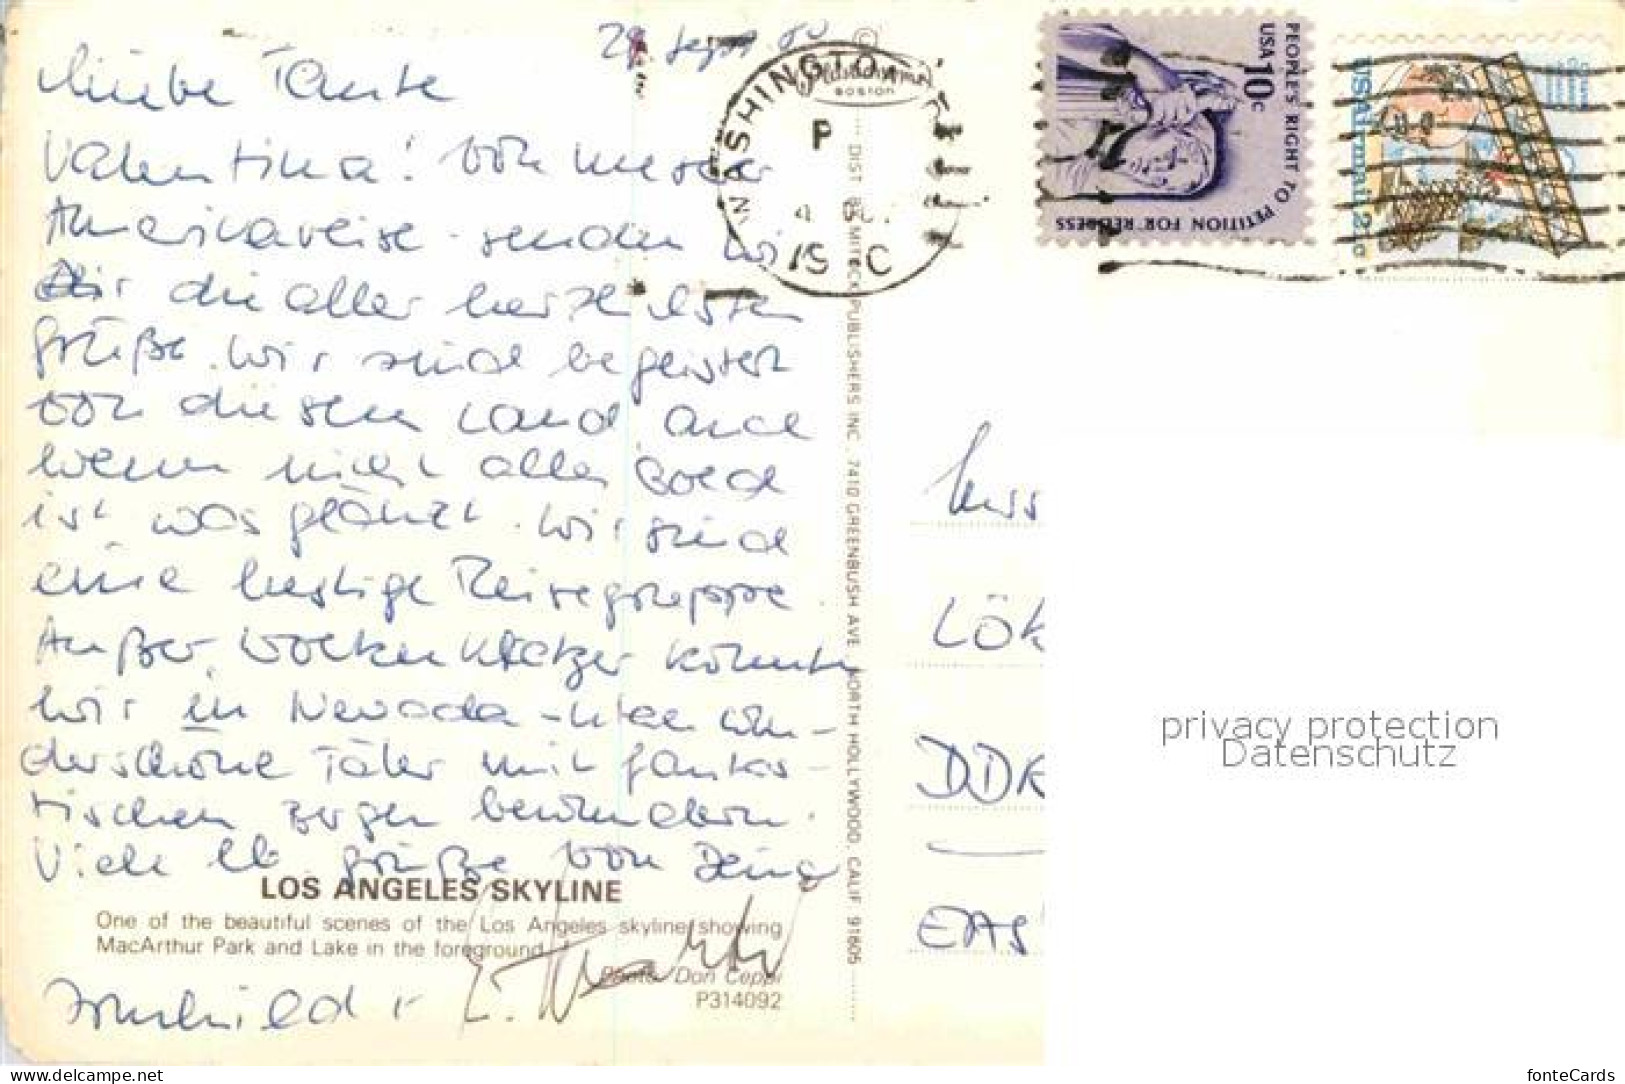 29. Sept. 80
Liebe Tante
Valentina! Von unserer
Amerikareise senden wir
Dir die aller herzlichsten
Grüße. Wir sind begeistert
von diesem Land, auch
wenn nicht alles Gold
ist was glänzt. Wir sind
eine lustige Reisegruppe.
Außer Wolkenkratzer konnten
wir in Nevada - Utah wun-
derschöne Täler mit fantas-
tischen Bergen bewundern.
Viele lb. Grüße von Deiner
LOS ANGELES SKYLINE
One of the beautiful scenes of the Los Angeles skyline showing
MacArthur Park and Lake in the foreground.
Photo: Don Ceppi
P314092
©
Plastichrome
BOSTON
DIST. BY MITOCK PUBLISHERS INC. 7410 GREENBUSH AVE. NORTH HOLLYWOOD, CALIF. 91605
WASHINGTON
P
4
PEOPLE'S RIGHT TO PETITION FOR REDRESS
USA 10c
USAirmail 21c
Miss
LÖK
DDR
EAS
privacy protection
Datenschutz
https://www.delcampe.net/
fonteCards